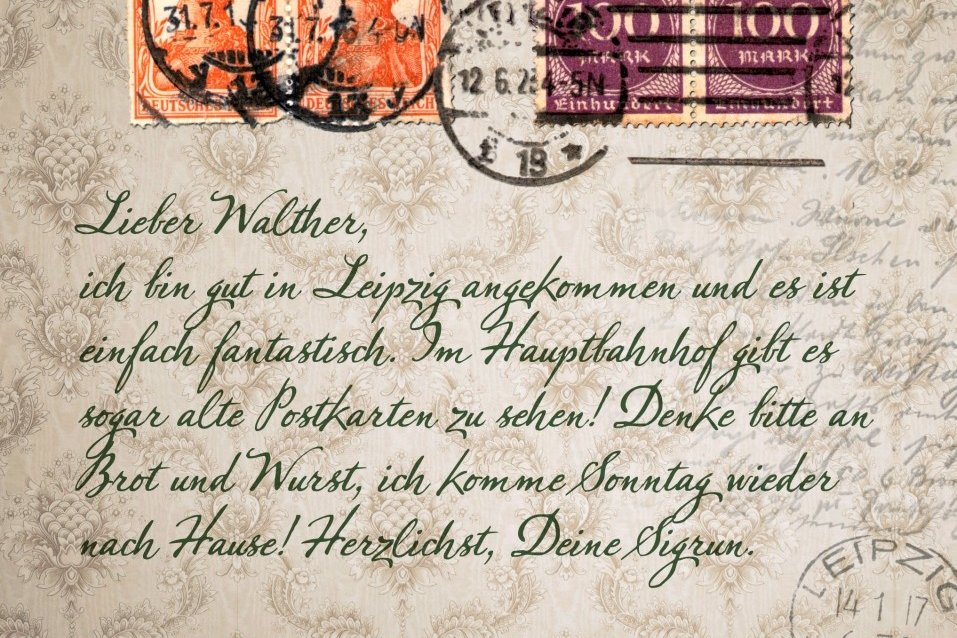 31.7.1
31.7.16.4-5N
12 6.23 4-5N
19 *
DEUTSCHES
DEUTSCHES REICH
100 100
MARK MARK
Einhundert Einhundert
Lieber Walther,
ich bin gut in Leipzig angekommen und es ist
einfach fantastisch. Im Hauptbahnhof gibt es
sogar alte Postkarten zu sehen! Denke bitte an
Brot und Wurst, ich komme Sonntag wieder
nach Hause! Herzlichst, Deine Sigrun.
LEIPZIG
14 1 17